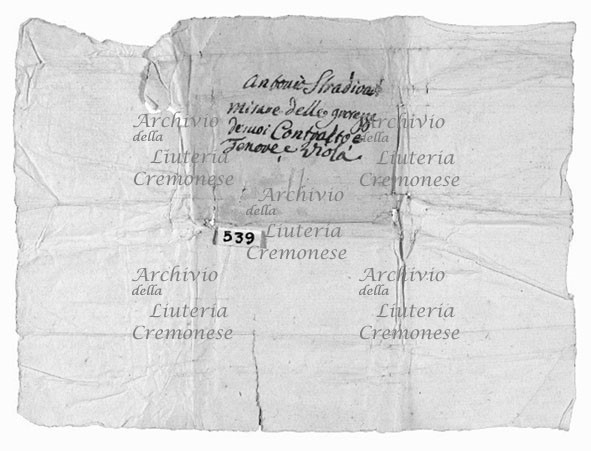 Antonio Stradivari
misure delle grosezze
de suoi Contralto e
Tenore, e Viola
539
Archivio
della
Liuteria
Cremonese
Archivio
della
Liuteria
Cremonese
Archivio
della
Liuteria
Cremonese
Archivio
della
Liuteria
Cremonese
Archivio
della
Liuteria
Cremonese